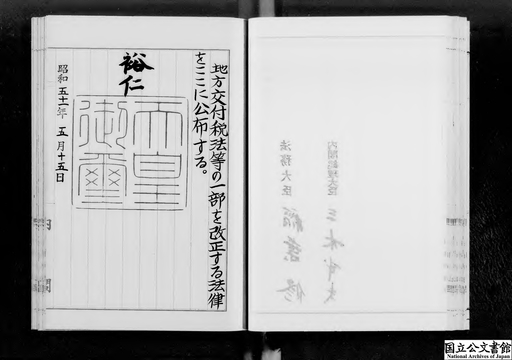 地方交付税法等の一部を改正する法律
をここに公布する。
裕仁
天皇
御璽
昭和五十一年五月十五日
内閣総理大臣 三木武夫
法務大臣 稻葉修
国立公文書館
National Archives of Japan